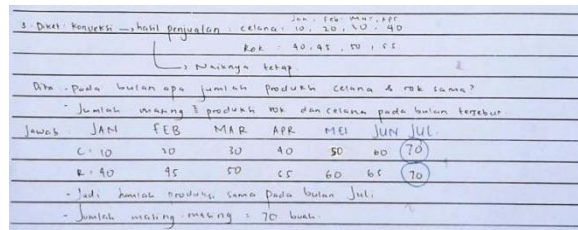 Jan, Feb, Mar, Apr
3. Diket : Konveksi → hasil penjualan : celana : 10, 20, 30, 40
Rok : 40, 45, 50, 55
→ Naiknya tetap
Dita : Pada bulan apa jumlah produksi celana & rok sama?
- Jumlah masing² produksi rok dan celana pada bulan tersebut.
Jawab : JAN FEB MAR APR MEI JUN JUL
C : 10 20 30 40 50 60 70
R : 40 45 50 55 60 65 70
- Jadi jumlah produksi sama pada bulan Juli
- Jumlah masing-masing = 70 buah.